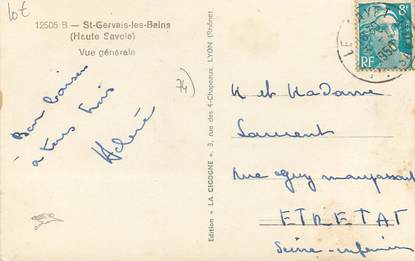 10t
12505 B - St-Gervais-les-Bains
(Haute Savoie)
Vue générale
74)
Bon baiser
à tous trois
Hélène
Edition « LA CIGOGNE », 3, rue des 4-Chapeaux, LYON (Rhône)
RF
8F
M et Madame
Laurent
rue Guy maupassant
ETRETAT
Seine-inférieure